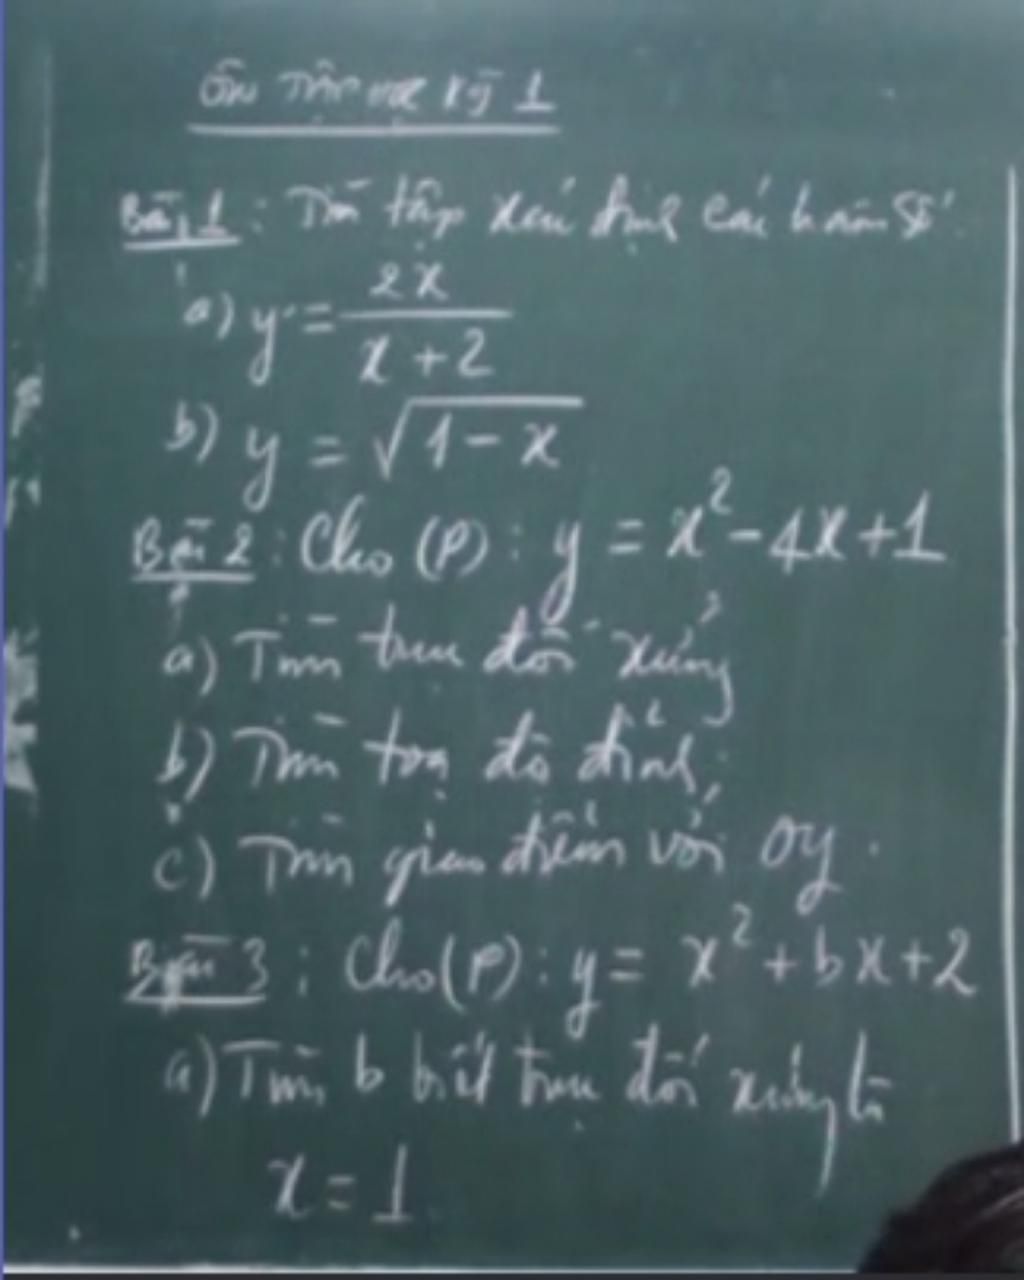 Ôn Tập học Kỹ 1
Bài 1: Tìm tập xác định các hàm số
a) y = 2x / x + 2
b) y = √1 - x
Bài 2: Cho (P): y = x² - 4x + 1
a) Tìm trục đối xứng
b) Tìm toạ độ đỉnh
c) Tìm giao điểm với Oy.
Bài 3: Cho (P): y = x² + bx + 2
a) Tìm b biết trục đối xứng là
x = 1